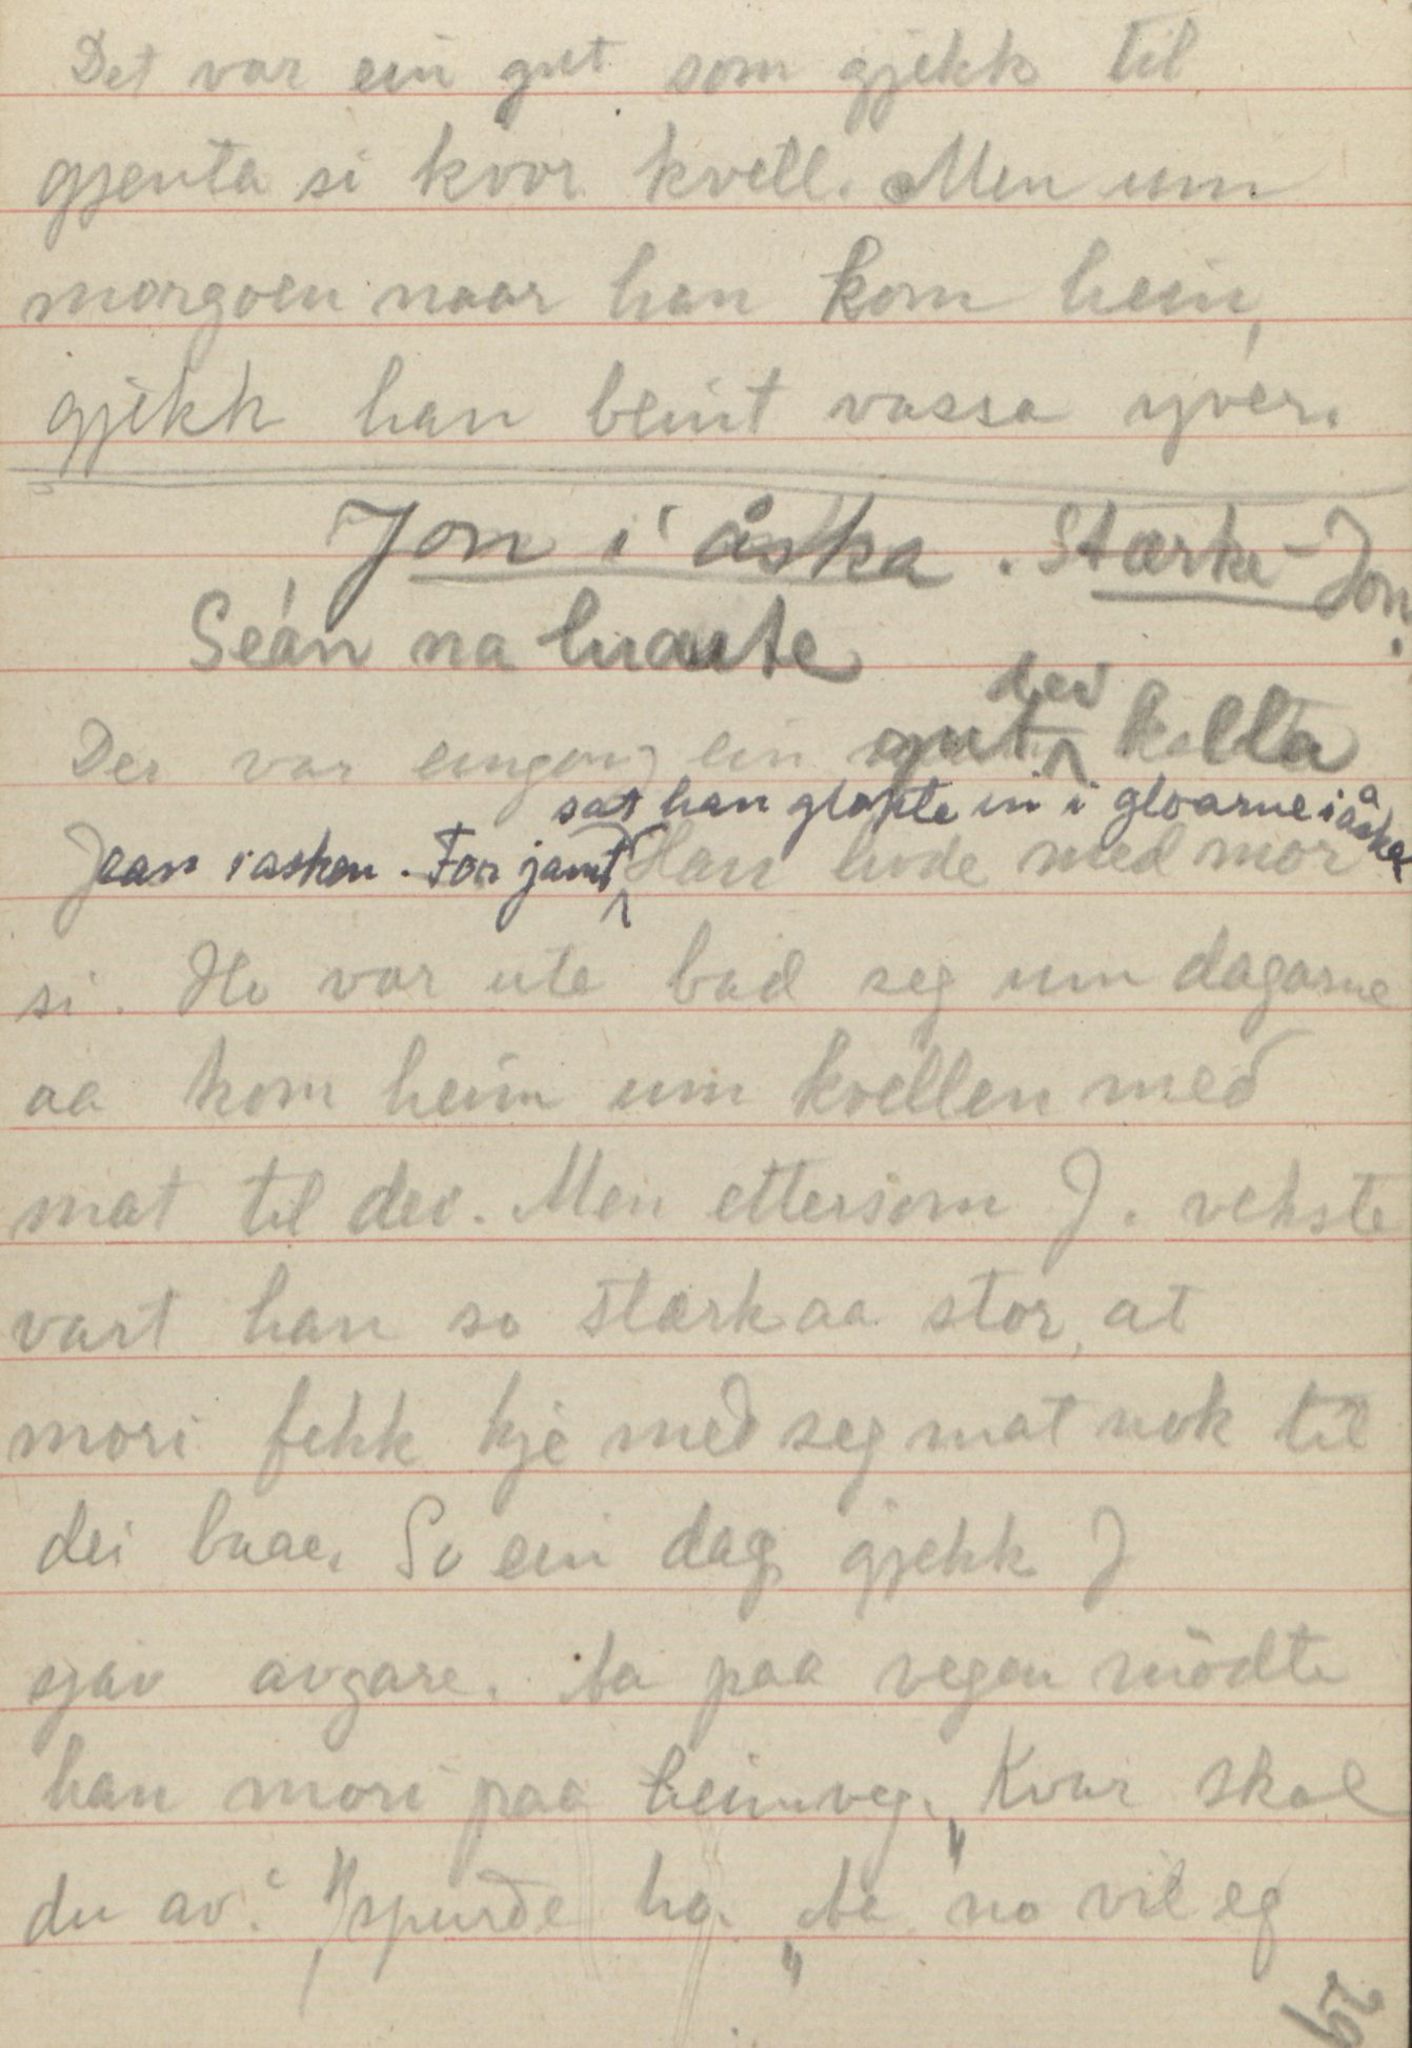 Det var ein gut som gjekk til
gjenta si kvor kvell. Men um
morgoen naar han kom heim,
gjekk han beint vassa yver.
Jon i åska. Stærke-Jon.
Seán na luaite
dei
Der var eingong ein gut kalla
sat han glapte in i gloarne i åska
Jean i asken. For jamt Han livde med mor
si. Ho var ute bad seg um dagarne
aa kom heim um kvellen med
mat til dei. Men ettersom J. vekste
vart han so stærk aa stor, at
mori fekk kje med seg mat nok til
dei baae. So ein dag gjekk J
sjav avgare. Aa paa vegen mödte
han mori paa heimveg. „Kvar skal
du av?" spurde ho. „Aa no vil eg
29